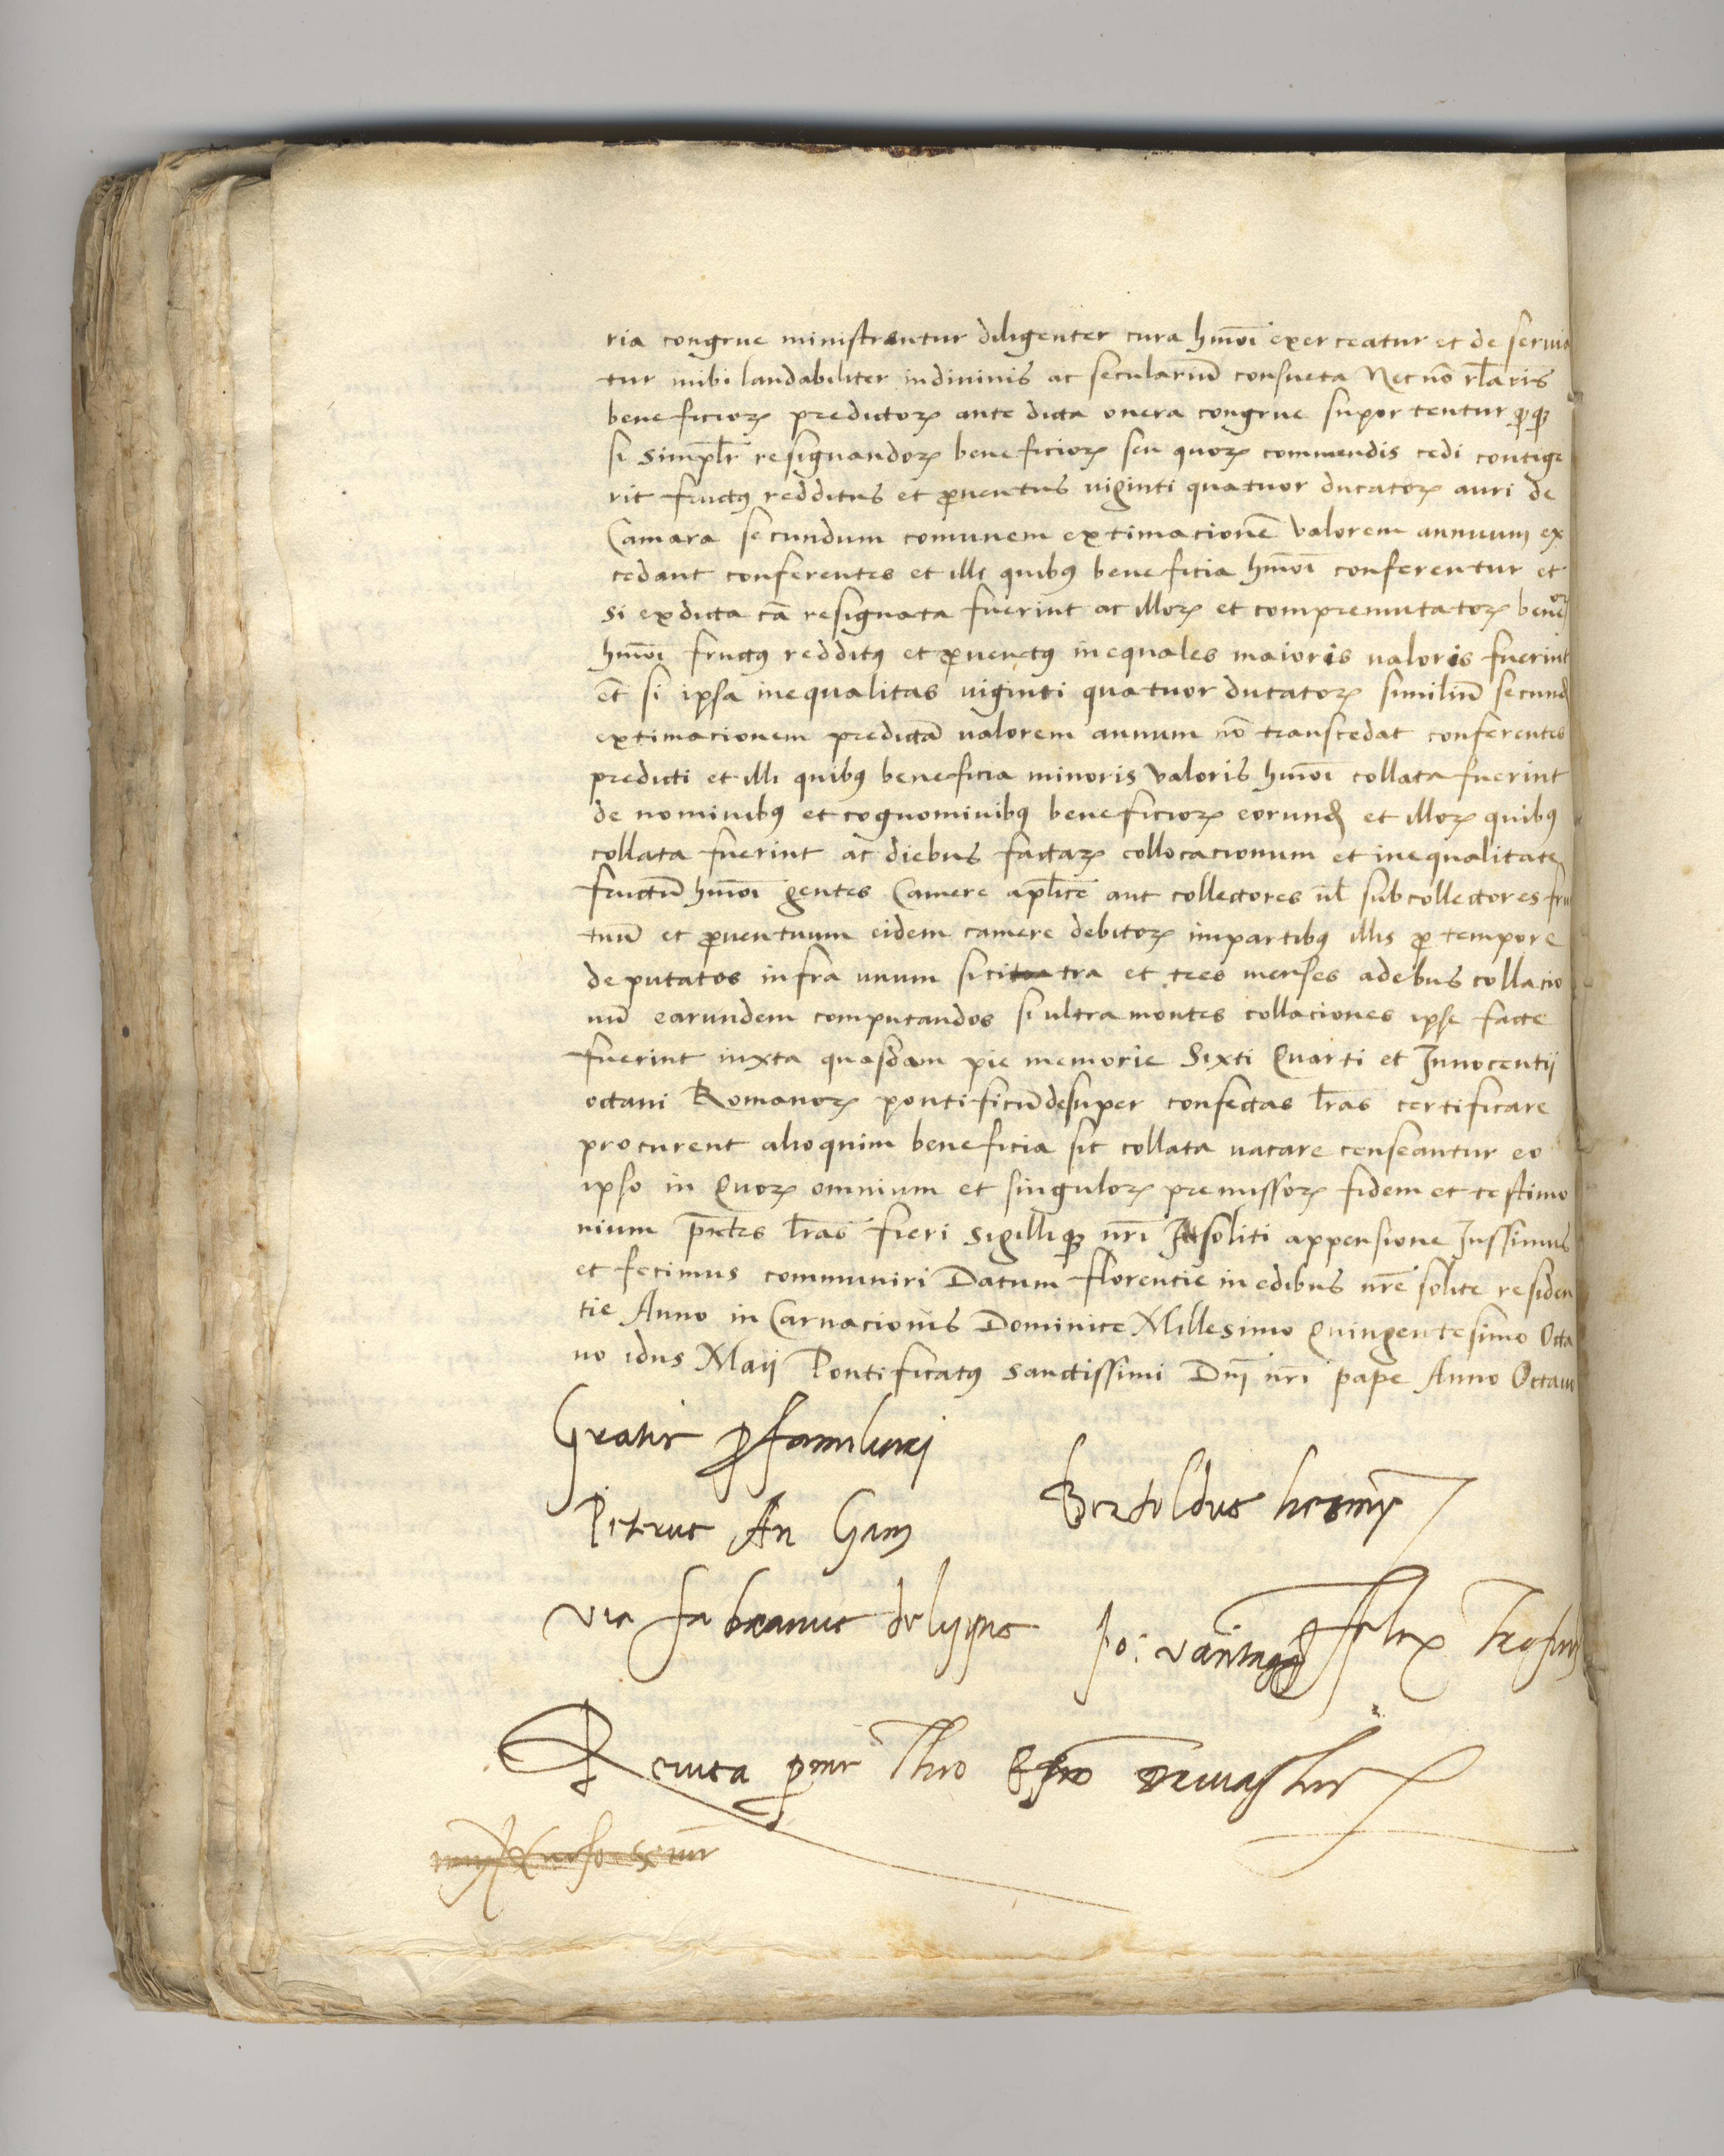 ria congrue ministrentur diligenter cura hmõi exerceatur et deservia
tur inibi laudabiliter indivinis ac seculariũ consueta Nec nõ rl̃aris
beneficioꝝ predictoꝝ ante dicta onera congrue supor tentur ꝙꝗ
si simpl̃r resignandoꝝ beneficioꝝ seu quoꝝ commendis cedi contige
rit fructꝰ redditus et ꝓventus viginti quatuor ducatoꝝ auri de
Camara secundum comunem extimacionẽ valorem annuum ex
cedant conferentes et illi quibꝰ beneficia hmõi conferentur et
si ex dicta cã resignata fuerint ac illoꝝ et compremutatoꝝ
hmõi fructꝰ redditꝰ et ꝓventꝰ inequales maioris valoris fuerint
et̃ si ipsa inequalitas viginti quatuor ducatoꝝ similiũ secund
extimacionem predictã valorem annum nõ transcedat conferentes
predicti et illi quibꝰ beneficia minoris valoris hmõi collata fuerint
de nominibꝰ et cognominibꝰ beneficioꝝ eorund et illoꝝ quibꝰ
collata fuerint ac diebus factaꝝ collocacionum et inequalitate
fructũ hmõi gentes Camere apl̃ice aut collectores ul̃ subcollectores fru
tuũ et ꝓventuum eidem camere debitoꝝ inpartibꝰ illis ꝓ tempore
deputatos infra unum si citra et tres menses adebus collacio
nũ earundem computandos si ultra montes collaciones ipse facte
fuerint iuxta quasdam pie memorie Sixti Quarti et Innocentii
octavi Romanoꝝ pontificũ desuper confectas l̃ras certificare
procurent alioquim beneficia sic collata vacare censeantur eo
ipso in Quoꝝ omnium et singuloꝝ premissoꝝ fidem et testimo
nium p̃ntes l̃ras fieri sigilliqꝫ nr̃i soliti appensione Iussimus
et fecimus communiri Datum florentie in edibus nr̃e solite residen
tie Anno in Carnacionis Dominice Millesimo Quingentesimo Octa
vo idus Maij Pontificatꝰ sanctissimi Dnĩ nr̃i pape Anno Octavo
Gratis ꝓ familiari
Bertoldus
Petrus An
via fabianus de lippis
Jo: vantag felix